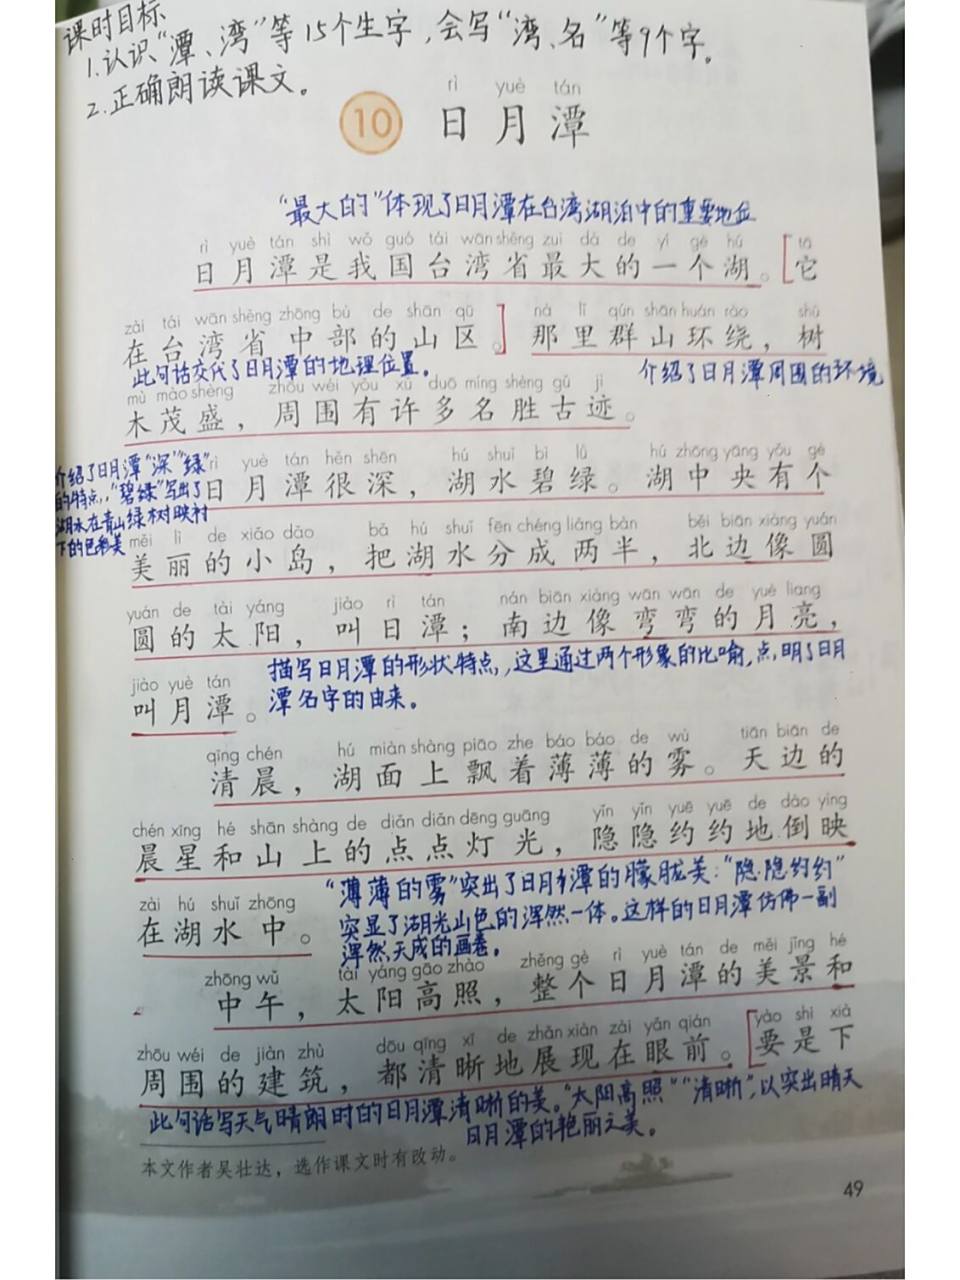 课时目标
1.认识“潭、湾”等15个生字,会写“湾、名”等9个字。
2.正确朗读课文。
rì yuè tán
10 日月潭
“最大的”体现了日月潭在台湾湖泊中的重要地位
rì yuè tán shì wǒ guó tái wān shěng zuì dà de yí gè hú tā
日月潭是我国台湾省最大的一个湖。[它
zài tái wān shěng zhōng bù de shān qū nà lǐ qún shān huán rào shù
在台湾省中部的山区。]那里群山环绕,树
此句话交代了日月潭的地理位置。 介绍了日月潭周围的环境
mù mào shèng zhōu wéi yǒu xǔ duō míng shèng gǔ jì
木茂盛,周围有许多名胜古迹。
介绍了日月潭“深”“绿”
的特点,“碧绿”写出了
湖水在青山绿树映衬
下的色彩美
rì yuè tán hěn shēn hú shuǐ bì lǜ hú zhōng yāng yǒu gè
日月潭很深,湖水碧绿。湖中央有个
měi lì de xiǎo dǎo bǎ hú shuǐ fēn chéng liǎng bàn běi biān xiàng yuán
美丽的小岛,把湖水分成两半,北边像圆
yuán de tài yáng jiào rì tán nán biān xiàng wān wān de yuè liang
圆的太阳,叫日潭;南边像弯弯的月亮,
描写日月潭的形状特点,这里通过两个形象的比喻,点明了日月
潭名字的由来。
jiào yuè tán
叫月潭。
qīng chén hú miàn shàng piāo zhe báo báo de wù tiān biān de
清晨,湖面上飘着薄薄的雾。天边的
chén xīng hé shān shàng de diǎn diǎn dēng guāng yǐn yǐn yuē yuē de dào yìng
晨星和山上的点点灯光,隐隐约约地倒映
“薄薄的雾”突出了日月潭的朦胧美:“隐隐约约”
突显了湖光山色的浑然一体。这样的日月潭仿佛一副
浑然天成的画卷。
zài hú shuǐ zhōng
在湖水中。
zhōng wǔ tài yáng gāo zhào zhěng gè rì yuè tán de měi jǐng hé
中午,太阳高照,整个日月潭的美景和
zhōu wéi de jiàn zhù dōu qīng xī de zhǎn xiàn zài yǎn qián yào shi xià
周围的建筑,都清晰地展现在眼前。[要是下
此句话写天气晴朗时的日月潭清晰的美。“太阳高照”“清晰”,以突出晴天
日月潭的艳丽之美。
本文作者吴壮达,选作课文时有改动。
49